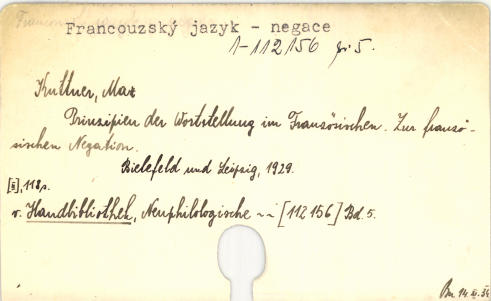 Francouzský jazyk - negace
1-112156 př 5.
Kuttner, Max
Prinzipien der Wortstellung im Französischen. Zur franzö-
sischen Negation.
Bielefeld und Leipzig, 1929.
[8], 118 s.
v. Handbibliothek, Neuphilologische -- [112156] Bd. 5.